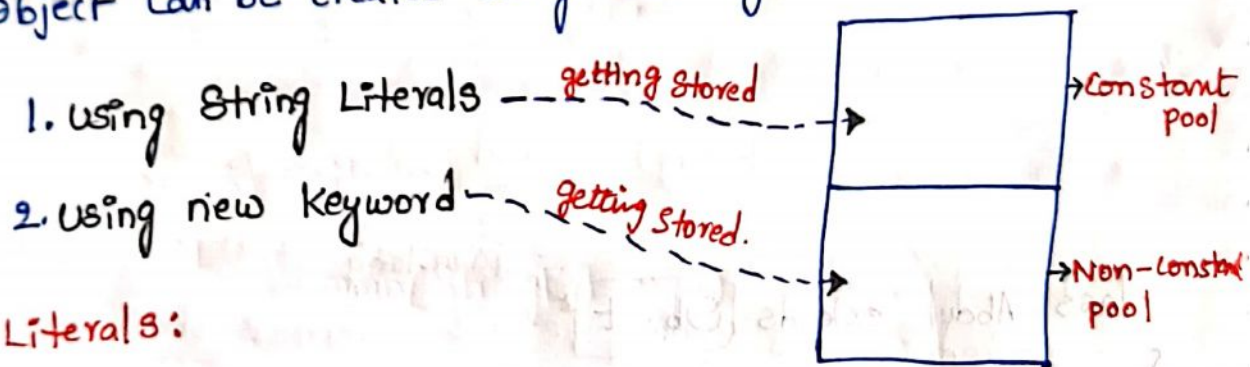 object can be
1. Using String Literals
getting Stored
Constant
pool
2. Using new keyword
getting Stored.
Non-Constant
pool
Literals: